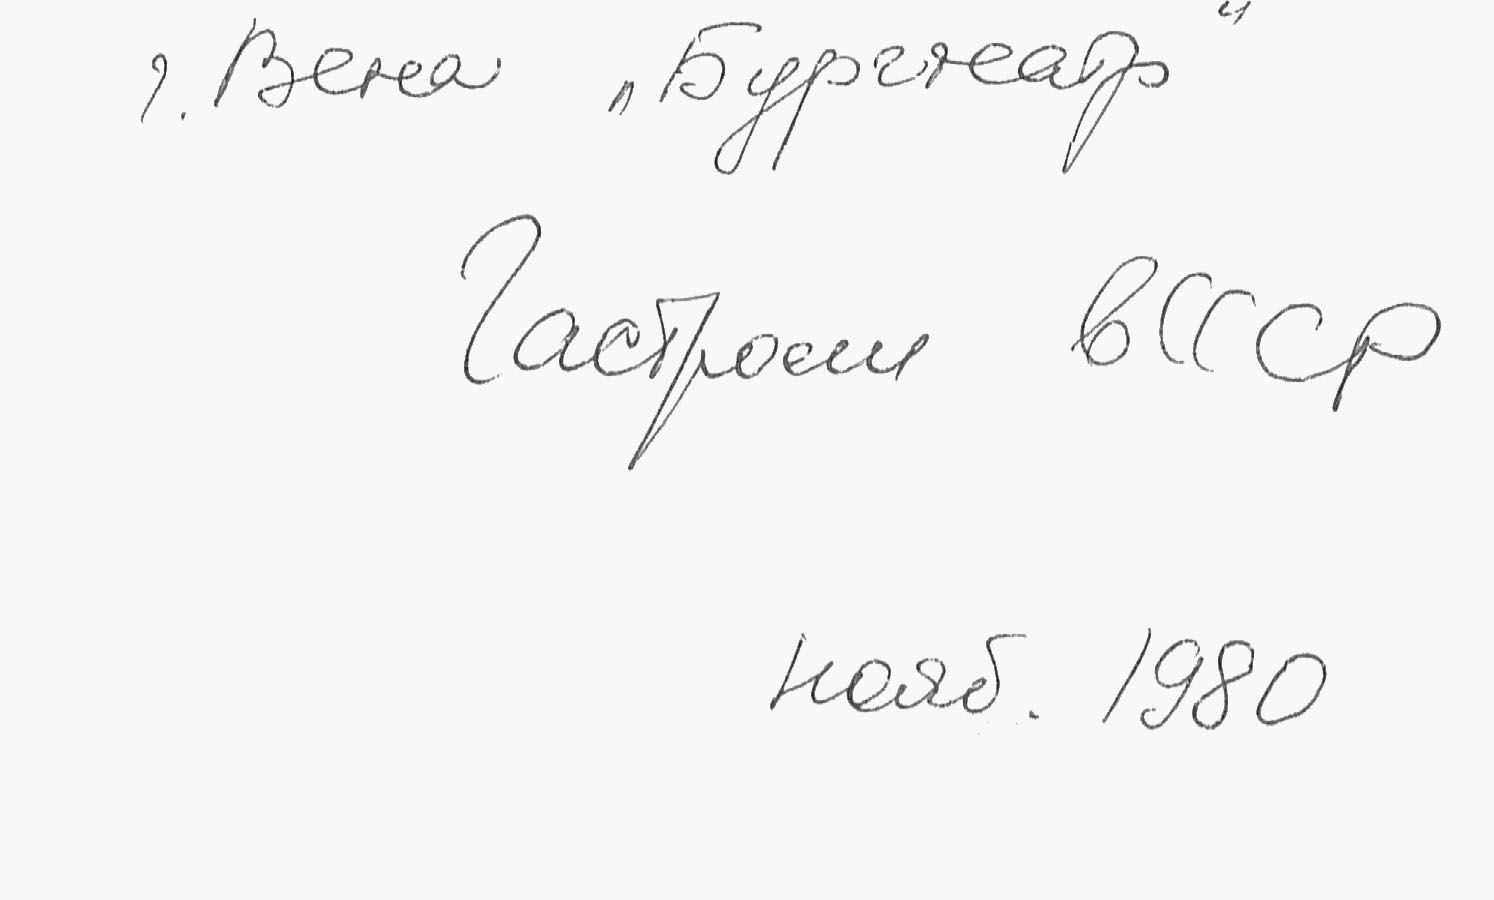 г. Вена „Бургтеатр"
Гастроли в СССР
нояб. 1980